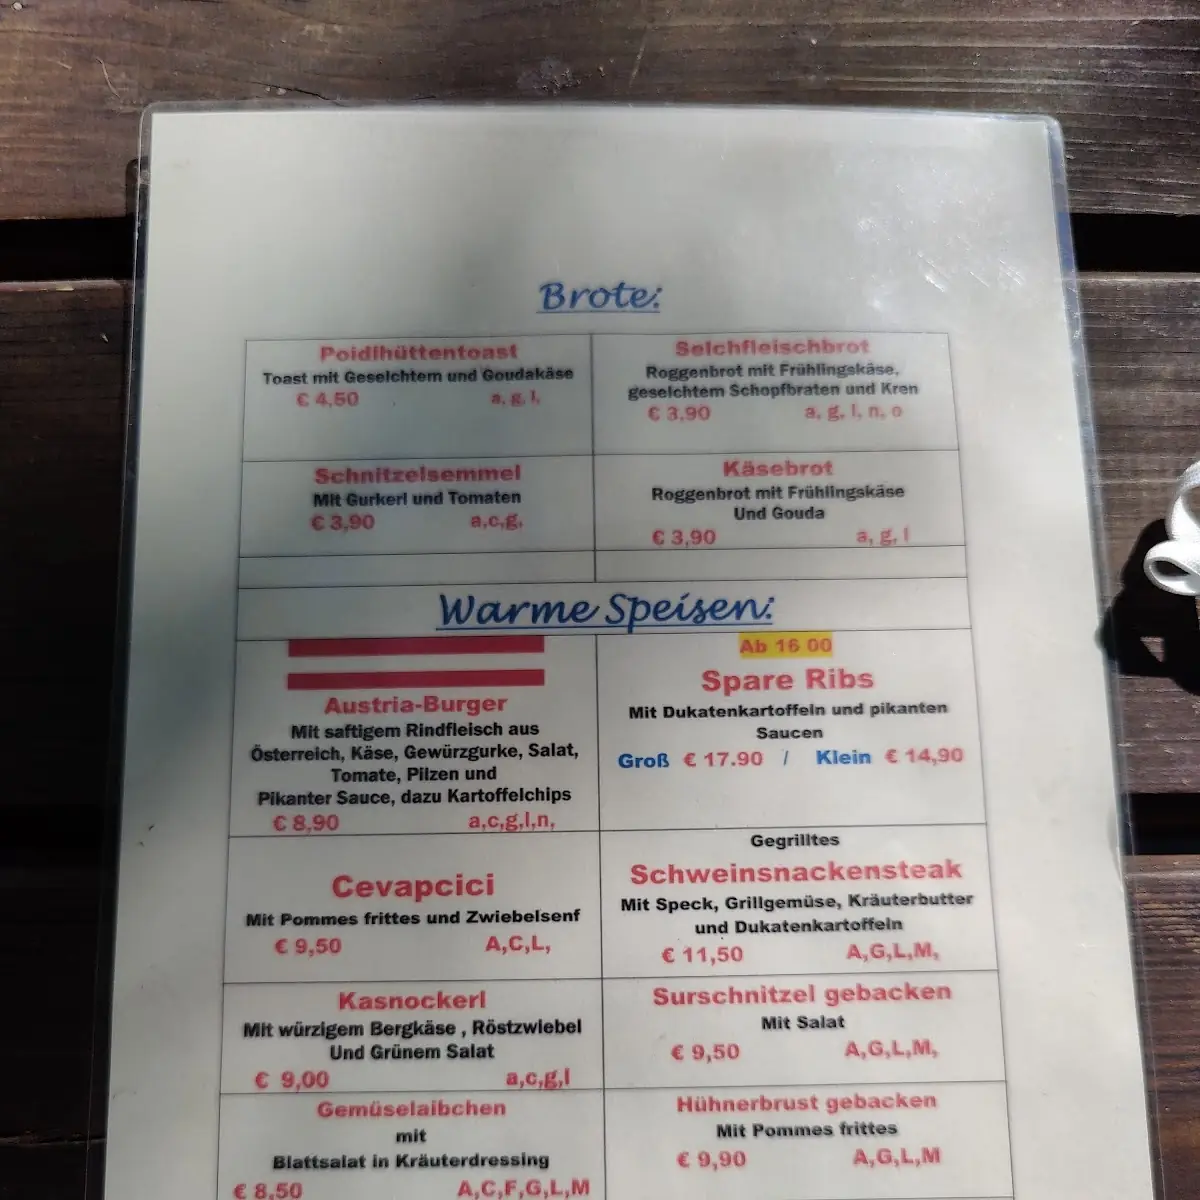 Brote:
Poidlhüttentoast
Toast mit Geselchtem und Goudakäse
€ 4,50 a, g, l,
Selchfleischbrot
Roggenbrot mit Frühlingskäse,
geselchtem Schopfbraten und Kren
€ 3,90 a, g, l, n, o
Schnitzelsemmel
Mit Gurkerl und Tomaten
€ 3,90 a,c,g,
Käsebrot
Roggenbrot mit Frühlingskäse
Und Gouda
€ 3,90 a, g, l
Warme Speisen:
Austria-Burger
Mit saftigem Rindfleisch aus
Österreich, Käse, Gewürzgurke, Salat,
Tomate, Pilzen und
Pikanter Sauce, dazu Kartoffelchips
€ 8,90 a,c,g,l,n,
Ab 16 00
Spare Ribs
Mit Dukatenkartoffeln und pikanten
Saucen
Groß € 17.90 / Klein € 14,90
Cevapcici
Mit Pommes frittes und Zwiebelsenf
€ 9,50 A,C,L,
Gegrilltes
Schweinsnackensteak
Mit Speck, Grillgemüse, Kräuterbutter
und Dukatenkartoffeln
€ 11,50 A,G,L,M,
Kasnockerl
Mit würzigem Bergkäse , Röstzwiebel
Und Grünem Salat
€ 9,00 a,c,g,l
Surschnitzel gebacken
Mit Salat
€ 9,50 A,G,L,M,
Gemüselaibchen
mit
Blattsalat in Kräuterdressing
€ 8,50 A,C,F,G,L,M
Hühnerbrust gebacken
Mit Pommes frittes
€ 9,90 A,G,L,M